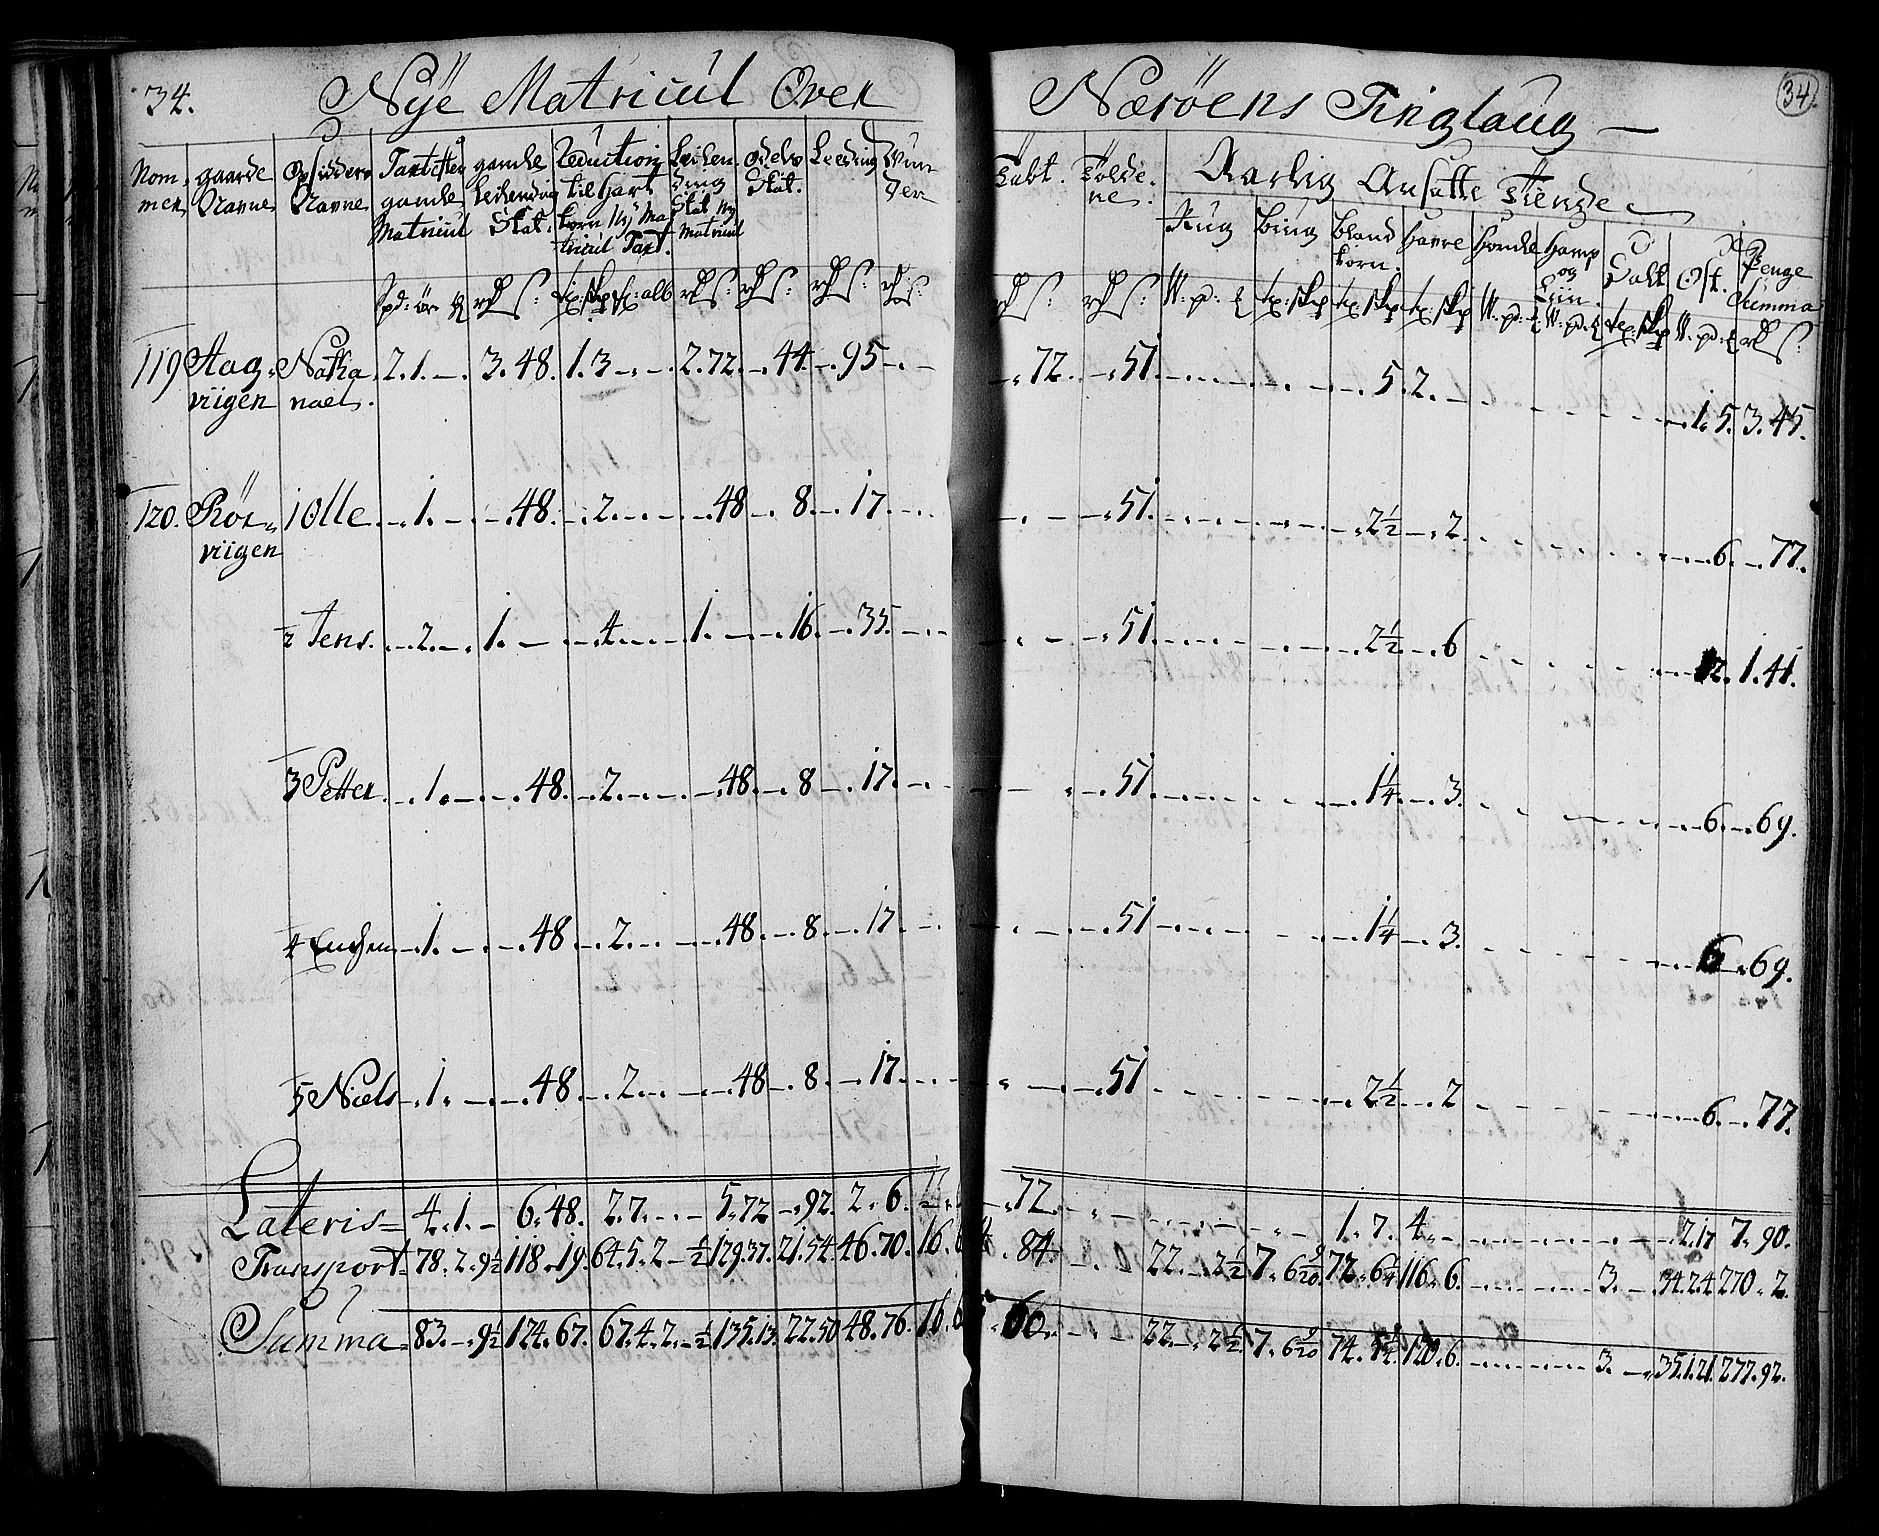 34. Nÿe Matricul Over Nærøens Tinglaug — 34.
Nom- mer gaarde Navne Opsiddere Navne Taxt efter gamle Matricul gamle Leilending Skat. Reduction til Hart korn Ny Ma tricul Taxt. Leilen ding Skat Ny Matricul Odels Skat. Leeding
Aarlig Ansatte Tiende
Rug Biug bland korn. Havre Homle Hamp og Liin. Ost. Penge Summa
119 Aag- viigen Natha nael. 2. 1. 3. 48. 1. 3 2. 72. 44. 95 72. 51. 5. 2. 1. 5. 3. 45.
120. Rör- viigen 1 Olle 1. 48. 2. 48 8. 17. 51. 2½ 2. 6. 77.
2 Jens. 2. 1. 4. 1. 16. 35. 51. 2½ 6 12. 1. 41.
3 Petter. 1. 48. 2. 48. 8 17. 51. 1¼ 3. 6. 69.
4 1. 48 2. 48. 8. 17 51 1¼ 3. 6 69.
5 Niels 1. 48 2. 48 8. 17. 51 2½ 2 6. 77.
Lateris 4. 1. 6. 48. 2. 7. 5. 72 92. 2. 6. 72. 1. 7. 4 2. 17 7. 90.
Transport 78. 2. 9½ 118. 19. 64. 5. 2 ½ 129. 37. 21. 54. 46. 70. 16. 84. 22. 2½ 7. 6 9/20 72. 6¼ 116. 6. 3. 34. 2. 4 270. 2.
Summa 83. 9½ 124. 67. 67. 4. 2. ½ 135. 13. 22. 50 48. 76. 16. 60. 22. 2½ 7. 6 9/20 74. 5¼ 120. 6. 3. 35. 1. 21. 277. 92.